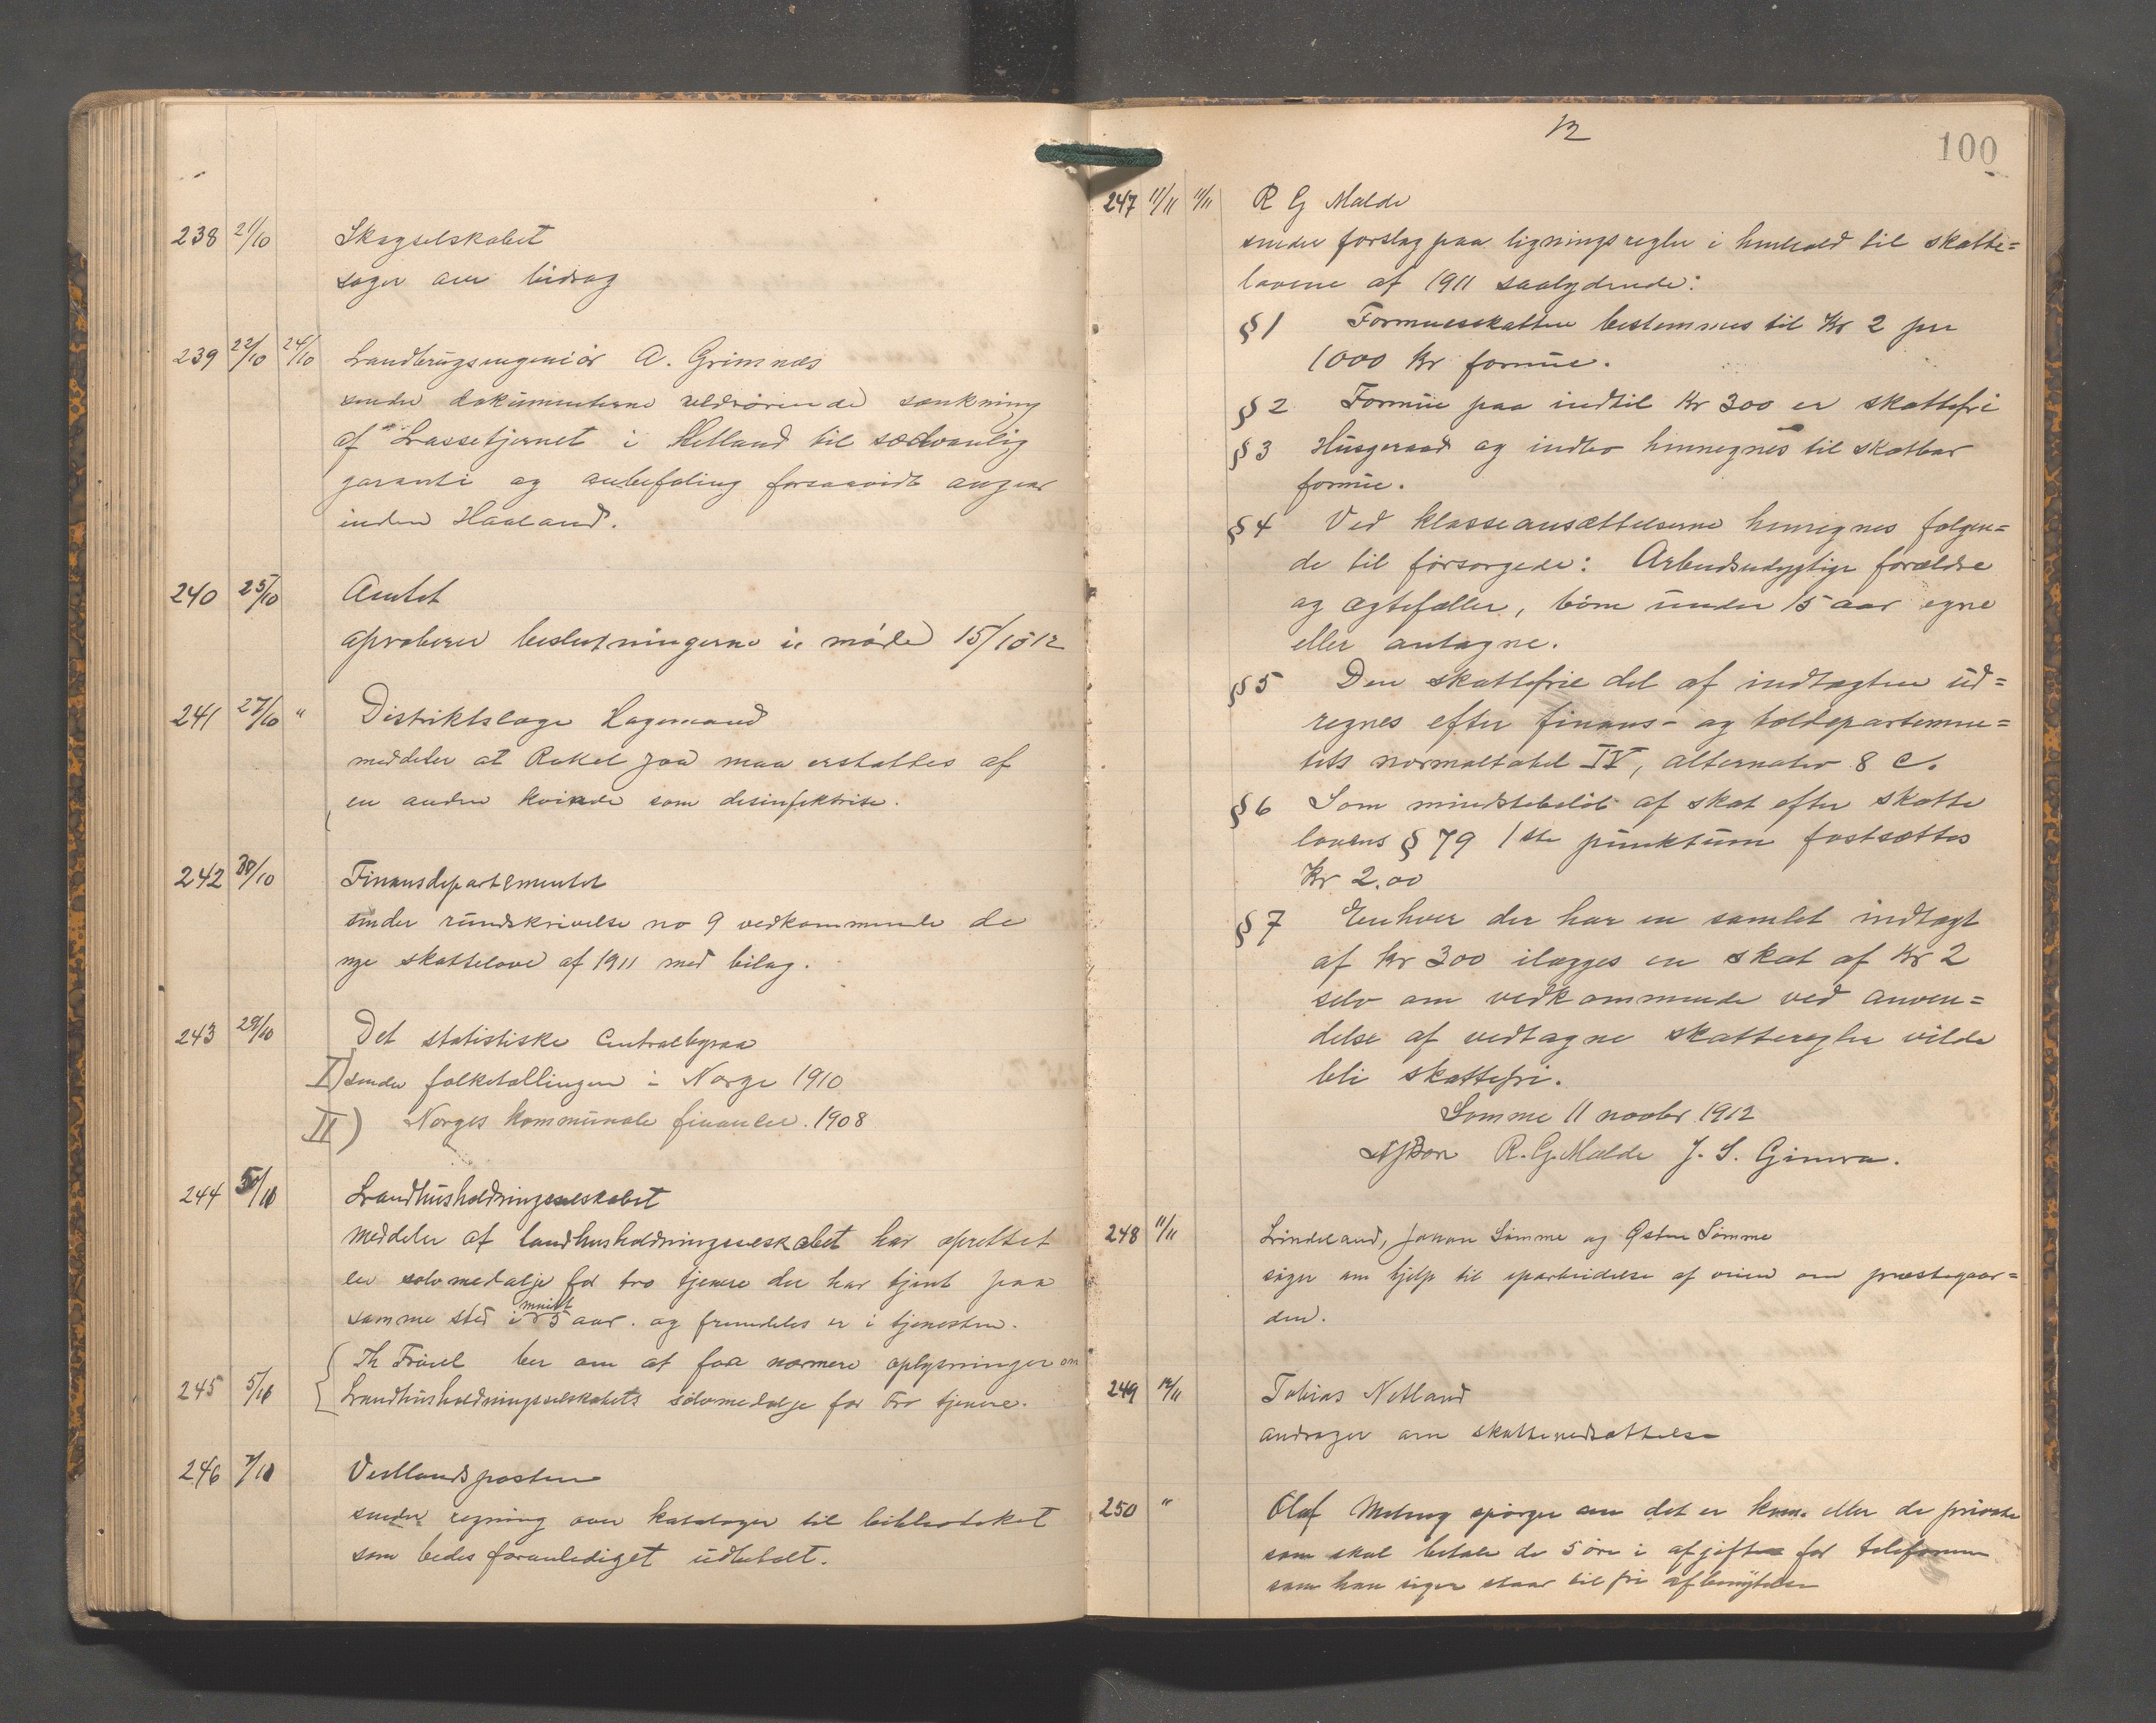 238 21/10 Skogselskabet
søger om bidrag
239 22/10 24/10 Landbrugsingeniör A. Grimnæs
sender dokumenterne vedrörende sænkning
af Lassetjernet i Hetland til sædvanlig
garanti og anbefaling forsaavidt angaar
inden Haaland.
240 25/10 Amtet
aproberer beslutningerne i møde 15/10 12
241 27/10 " Distriktslæge Hagemand
meddeler at Rakel Joa maa erstattes af
en anden kvinde som desinfektrise.
242 30/10 Finansdepartementet
sender rundskrivelse no 9 vedkommende de
nye skattelove af 1911 med bilag.
243 29/10 Det statistiske Centralbyraa
I) sender folketællingen i Norge 1910
II) Norges kommunale finanser 1908
244 30/10 Landhusholdningsselskabet
meddeler at landhusholdningsselskabet har oprettet
en sølvmedalje for tro tjenere der har tjent paa
samme sted i mindst 25 aar. og fremdeles er i tjenesten.
Th ber om at faa nærmere oplysninger om
245 5/11 Landhusholdningsselskabets sölvmedalje for tro tjenere.
246 7/11 Vestlandsposten
sender regning over kataloger til biblioteket
som bedes foranlediget udbetalt.
12
100
247 11/11 11/11 R G Malde
sender forslag paa ligningsregler i henhold til skatte=
lovene af 1911 saalydende:
§ 1 Formuesskatten bestemmes til Kr 2 per
1000 Kr formue.
§ 2 Formue paa indtil Kr 300 er skattefri
§ 3 Husgeraad og indbo henregnes til skatbar
formue.
§ 4 Ved klasseansættelserne henregnes følgen=
de til forsørgede: Arbeidsudygtige forældre
og ægtefæller, börn under 15 aar egne
eller antagne.
§ 5 Den skattefrie del af indtægten ud=
regnes efter finans- og tolddepartemen=
tets normaltabel IV, alternativ 8 C.
§ 6 Som mindstebeløb af skat efter skatte
lovens § 79 1ste punktum fastsættes
Kr 2.00
§ 7 Enhver der har en samlet indtægt
af Kr 300 ilægges en skat af Kr 2
selv om vedkommende ved anven=
delse af vedtagne skatteregler vilde
bli skattefri.
Sømme 11 novbr 1912
R. G. Malde J. S. Gimra.
248 11/11 Lindeland, Johan Sømme og Østen Sømme
søger om hjelp til oparbeidelse af veien om præstegaar=
den.
249 12/11 Tobias Netland
andrager om skattenedsættelse
250 " Olaf Meling spørger om det er kom. eller de private
som skal betale de 5 öre i afgiften for telefonen
som han siger staar til fri afbenyttelse